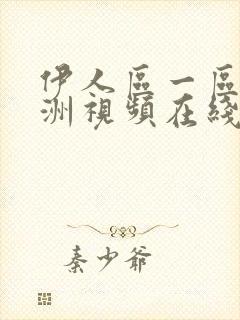 伊人區一區
洲視頻在綫
秦少爺